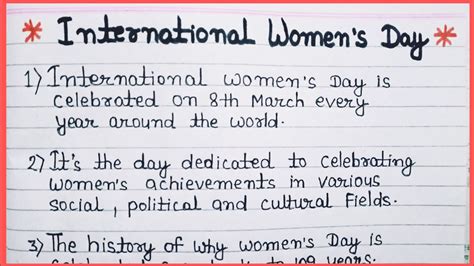 * International Women's Day *
1) International women's Day is
celebrated on 8th March every
year around the world.
2) It's the day dedicated to celebrating
women's achievements in various
social, political and cultural fields.
3) The history of why women's Day is
to 109 years.